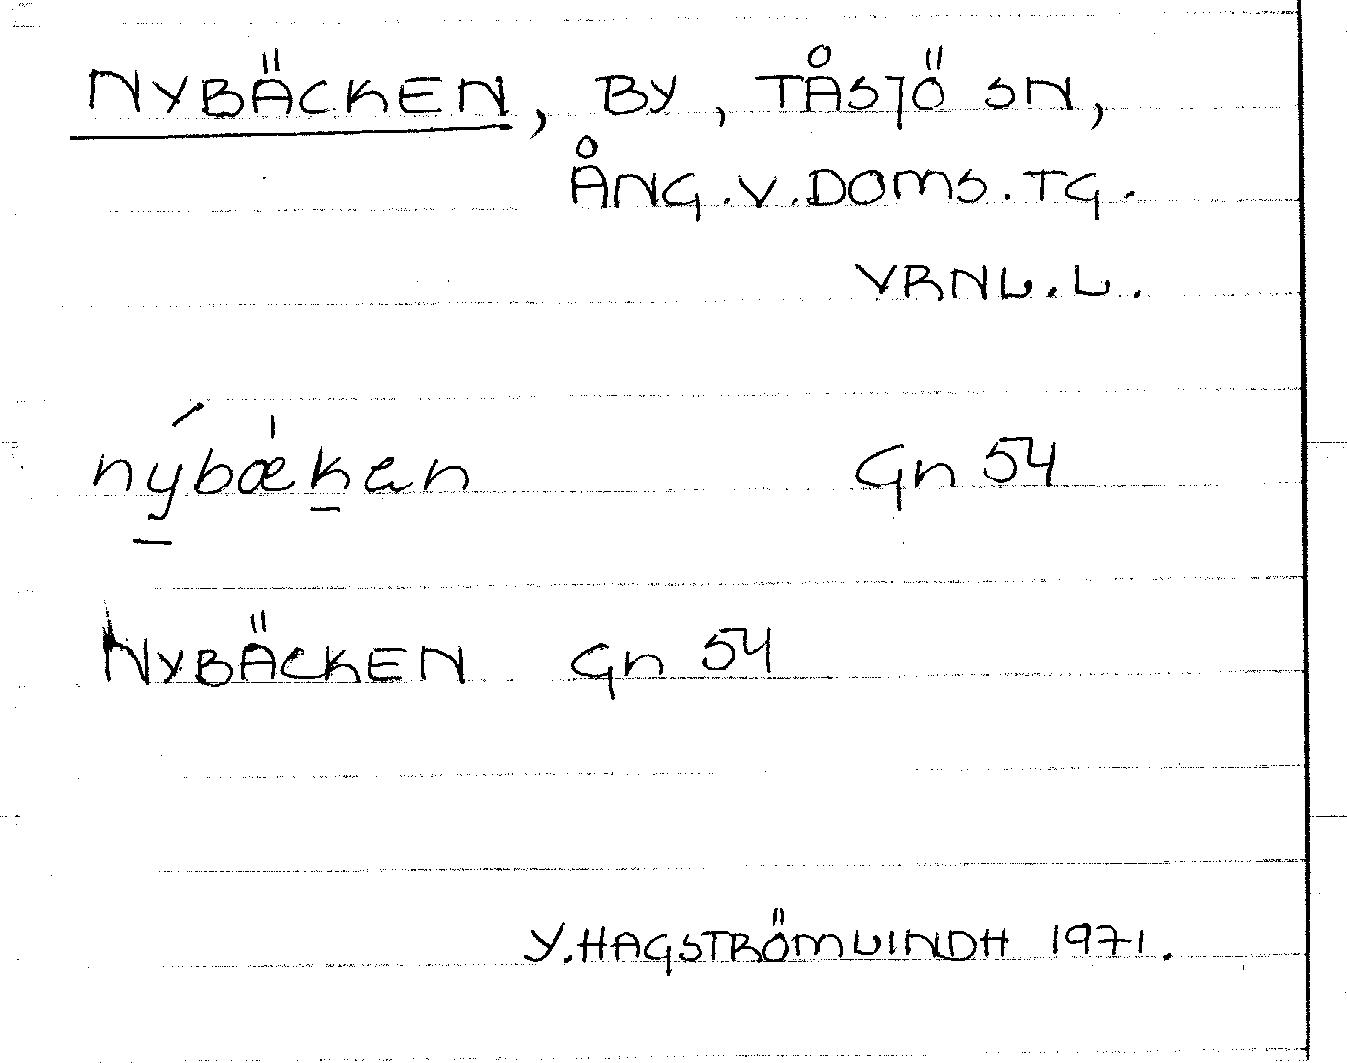 NYBÄCKEN, BY, TÅSJÖ SN,
ÅNG.V.DOMS.TG.
VRNL.L.
nýbǽkan Gn 54
NYBÄCKEN Gn 54
Y.HAGSTRÖMLINDH 1971.